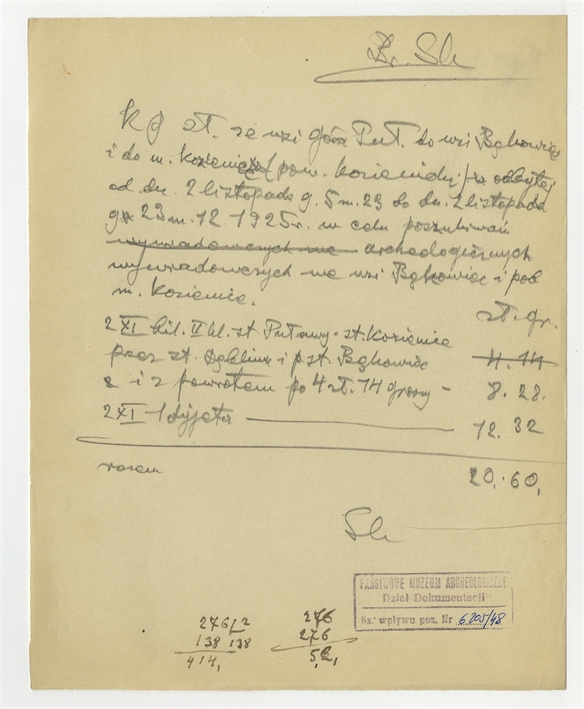 Br. Sk
K J zł. ze wsi góra Puł. do wsi Bąkowiec
i do m. Kozienice (pow. kozienicki) odbytej
od dn. 2 listopada g. 5 m. 23 do dn. 2 listopada
g. 23 m. 12 1925 r. w celu poszukiwań
wywiadowczych we archeologicznych
wywiadowczych we wsi Bąkowiec i pod
m. Kozienice.
zł. gr.
2 XI bil. II kl. st. Puławy - st. Kozienice
przez st. Dęblin i pst. Bąkowiec
4.14
i z powrotem po 4 zł. 14 groszy - 8. 28.
2 XI 1 dyjeta 12. 32
razem 20. 60,
Sk
PAŃSTWOWE MUZEUM ARCHEOLOGICZNE
Dział Dokumentacji
Ks. wpływu poz. Nr 6205/48
276 / 2 276
138 138 276
414, 52,